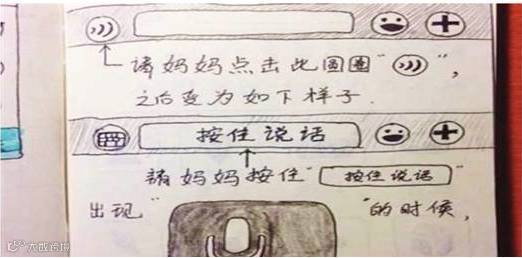 请妈妈点击此圆圈“ ”，
之后变为如下样子.
按住 说话
请妈妈按住“按住说话”
出现“ ”的时候，
大数跨境